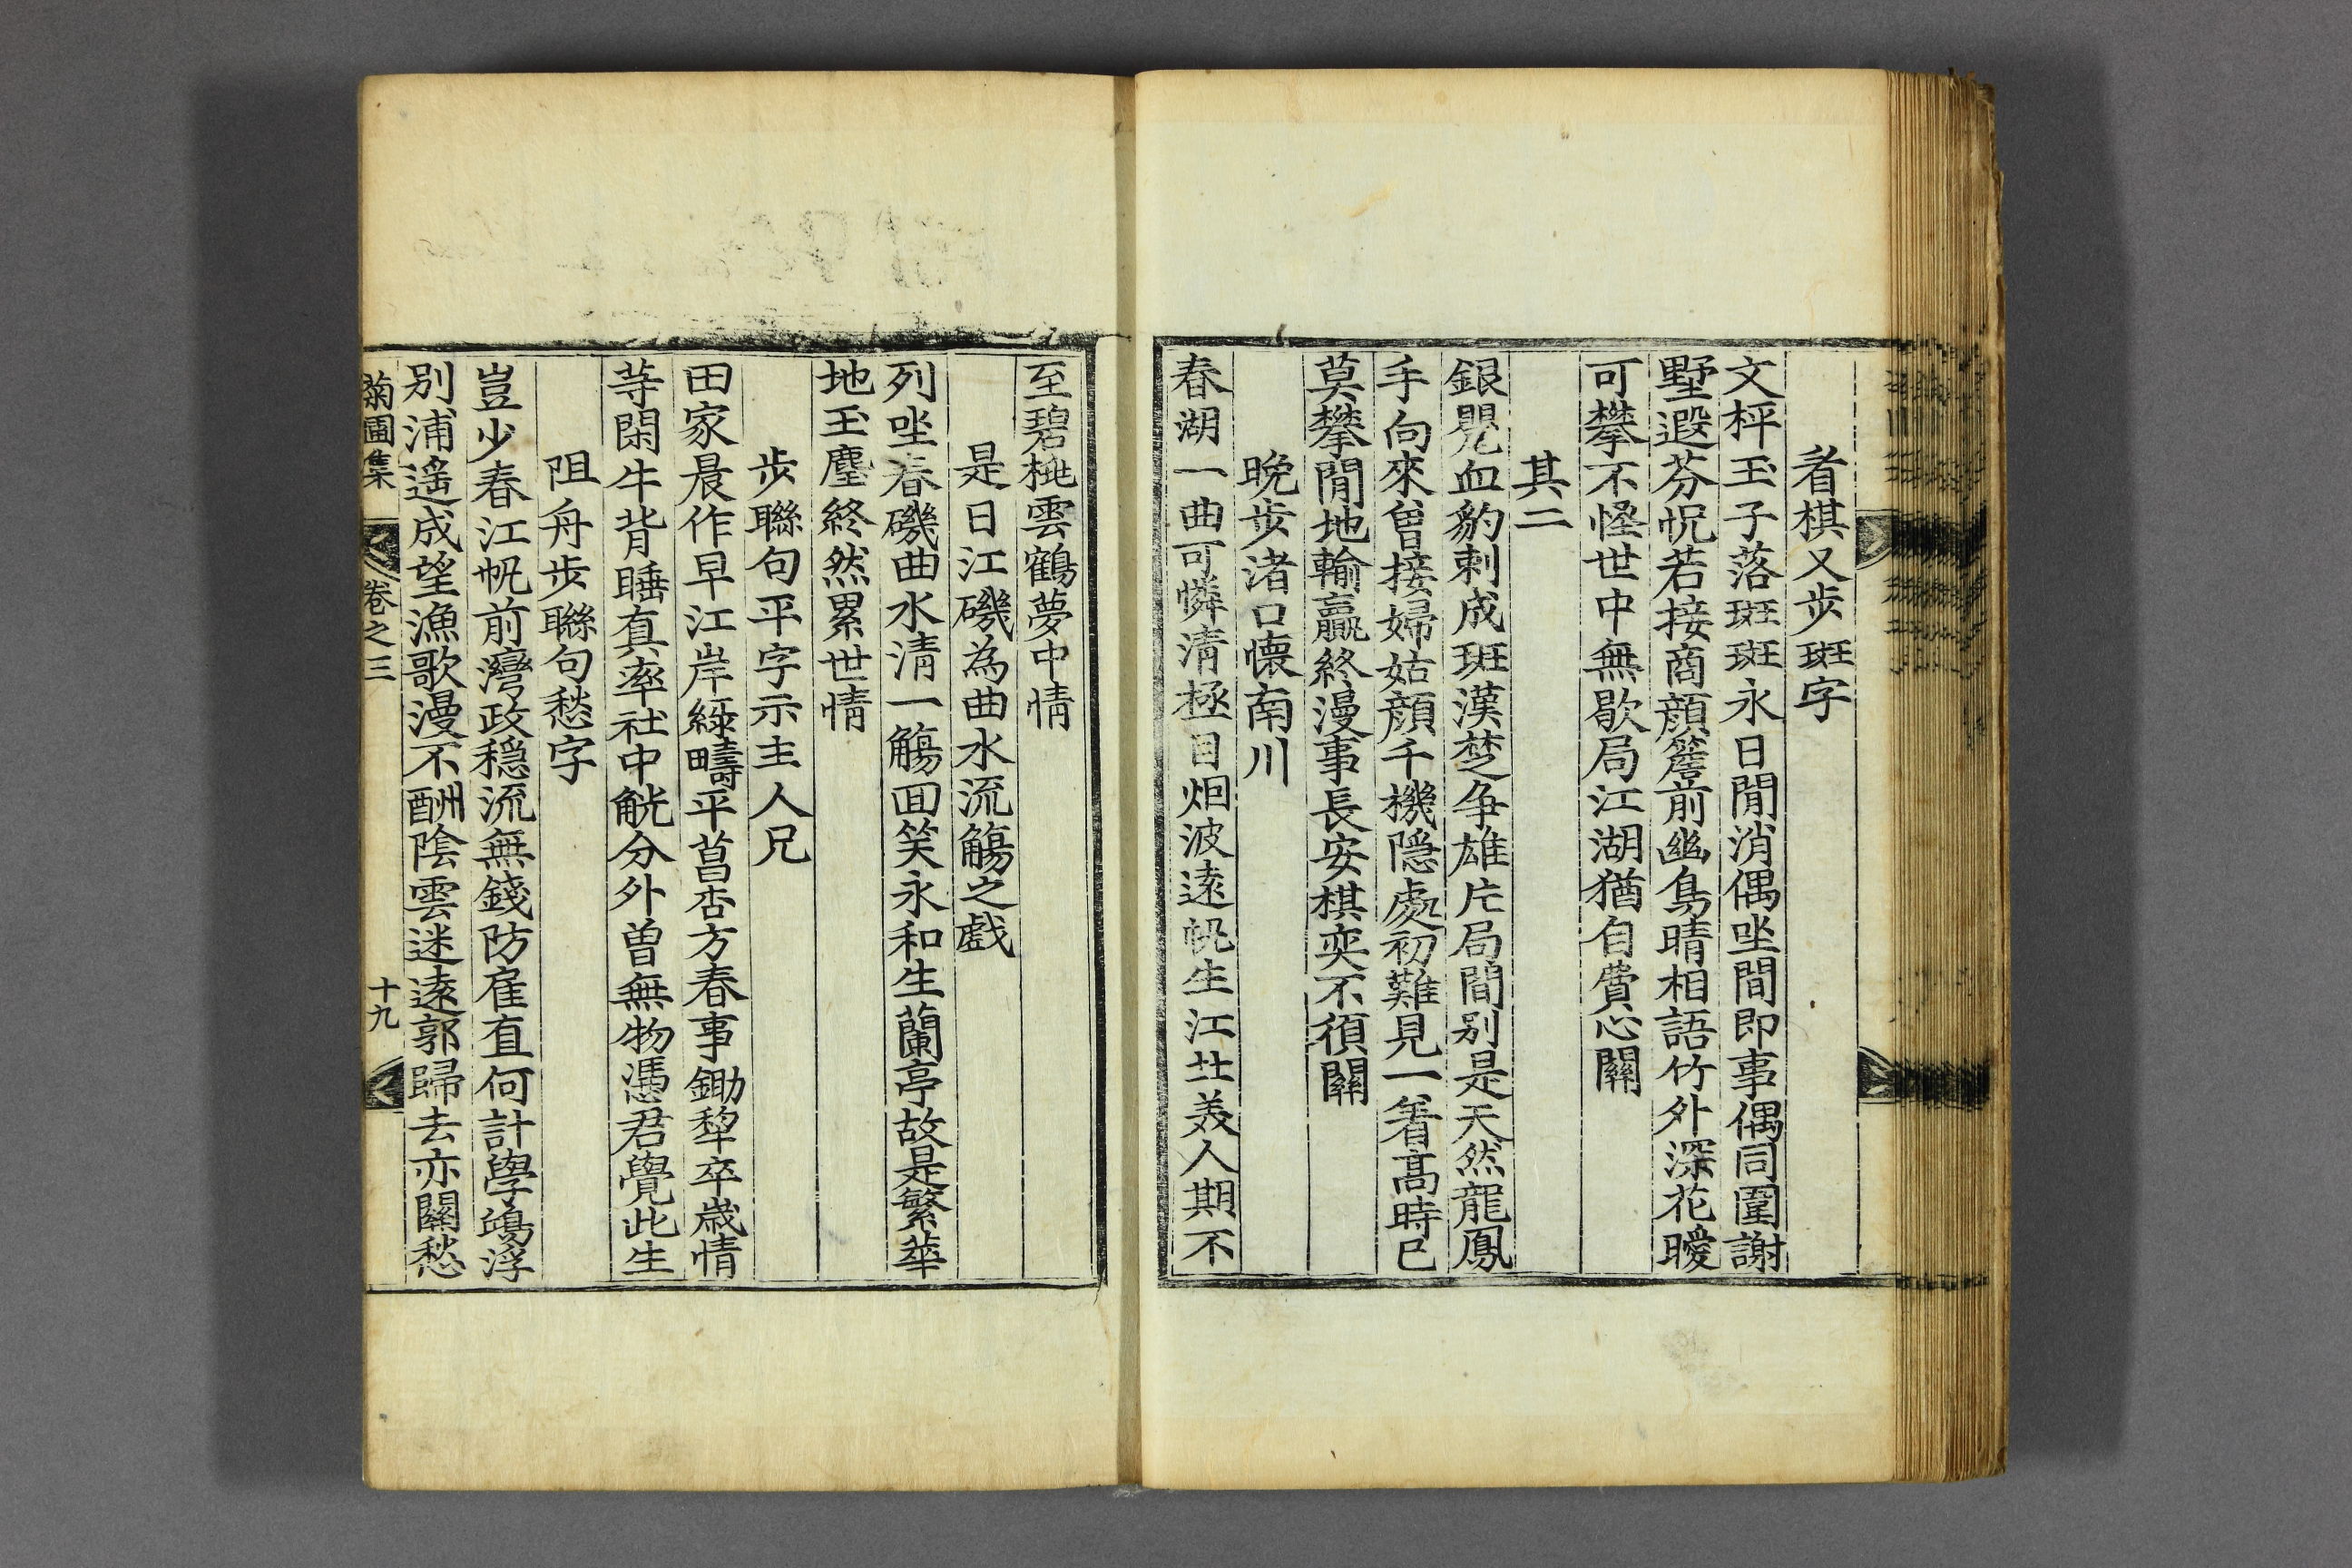 看棋又步斑字
文枰玉子落斑斑永日閒消偶坐間即事偶同圍謝
墅遐芬怳若接商顔簷前幽鳥晴相語竹外深花暖
可攀不怪世中無歇局江湖猶自費心關
其二
銀兕血豹刺成斑漢楚争雄片局間别是天然龍鳳
手向來曾接婦姑顔千機隱處初難見一着高時已
莫攀閒地輸贏終漫事長安棋奕不須關
晩步渚口懷南川
春湖一曲可憐淸極目烟波遠帆生江北美人期不
至碧桃雲鶴夢中情
是日江磯為曲水流觴之戱
列坐春磯曲水淸一觴回笑永和生蘭亭故是繁華
地玉麈終然累世情
步聯句平字示主人兄
田家晨作早江岸綠疇平菖杏方春事鋤犂卒歲情
等閑牛背睡真率社中觥分外曾無物憑君覺此生
阻舟步聯句愁字
豈少春江帆前灣政穩流無錢防雇直何計學鳧浮
别浦遥成望漁歌漫不酬陰雲迷遠郭歸去亦關愁
菊圃集 卷之三 十九